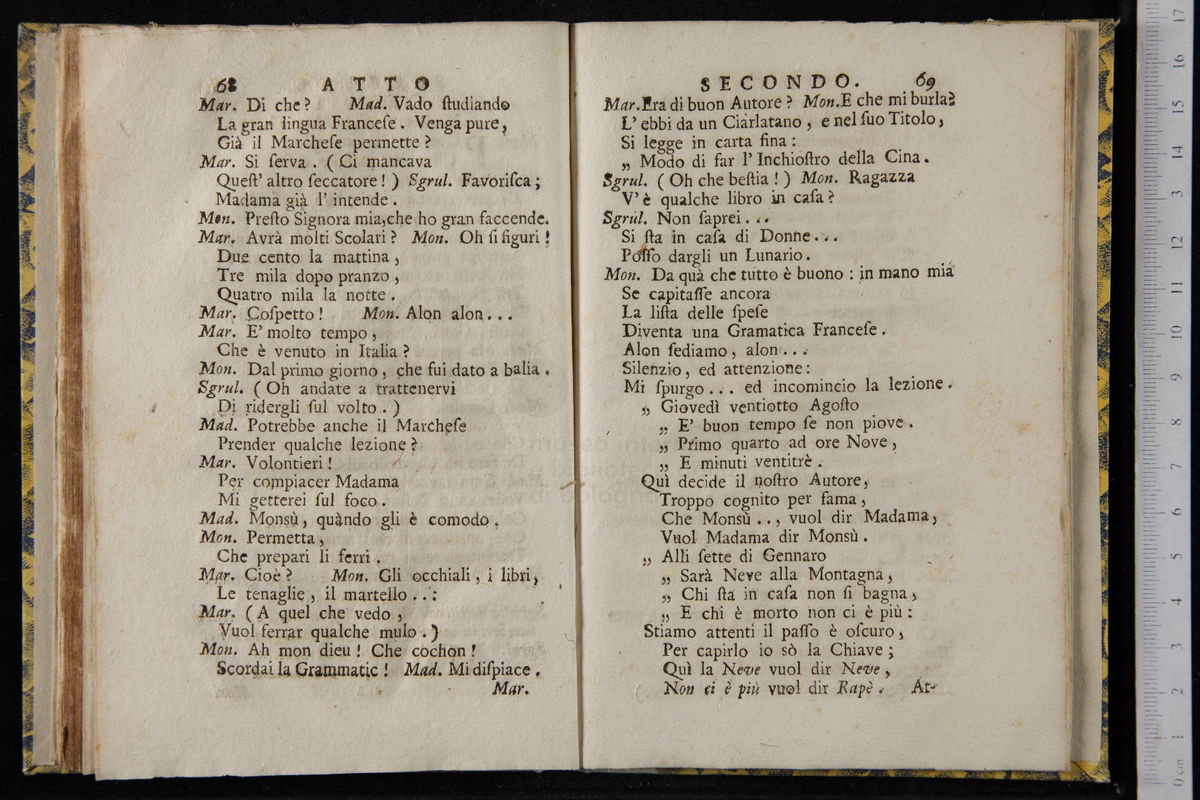 68 ATTO
Mar. Di che? Mad. Vado ſtudiando
La gran lingua Franceſe. Venga pure,
Già il Marcheſe permette?
Mar. Si ſerva. (Ci mancava
Queſt' altro ſeccatore!) Sgrul. Favoriſca;
Madama già l' intende.
Mon. Preſto Signora mia, che ho gran faccende.
Mar. Avrà molti Scolari? Mon. Oh ſi figuri!
Due cento la mattina,
Tre mila dopo pranzo,
Quatro mila la notte.
Mar. Coſpetto! Mon. Alon alon...
Mar. E' molto tempo,
Che è venuto in Italia?
Mon. Dal primo giorno, che fui dato a balia.
Sgrul. (Oh andate a trattenervi
Di ridergli ſul volto.)
Mad. Potrebbe anche il Marcheſe
Prender qualche lezione?
Mar. Volontieri!
Per compiacer Madama
Mi getterei ſul foco.
Mad. Monsù, quàndo gli è comodo.
Mon. Permetta,
Che prepari li ferri.
Mar. Cioè? Mon. Gli occhiali, i libri,
Le tenaglie, il martello..:
Mar. (A quel che vedo,
Vuol ferrar qualche mulo.)
Mon. Ah mon dieu! Che cochon!
Scordai la Grammatic! Mad. Mi diſpiace.
Mar.
SECONDO. 69
Mar. Era di buon Autore? Mon. E che mi burla?
L' ebbi da un Ciarlatano, e nel ſuo Titolo,
Si legge in carta fina:
„ Modo di far l' Inchioſtro della Cina.
Sgrul. (Oh che beſtia!) Mon. Ragazza
V' è qualche libro in caſa?
Sgrul. Non ſaprei...
Si ſta in caſa di Donne...
Poſſo dargli un Lunario.
Mon. Da quà che tutto è buono: in mano mia
Se capitaſſe ancora
La liſta delle ſpeſe
Diventa una Gramatica Franceſe.
Alon ſediamo, alon...
Silenzio, ed attenzione:
Mi ſpurgo... ed incomincio la lezione.
„ Giovedì ventiotto Agoſto
„ E' buon tempo ſe non piove.
„ Primo quarto ad ore Nove,
„ E minuti ventitrè.
Quì decide il noſtro Autore,
Troppo cognito per fama,
Che Monsù.., vuol dir Madama,
Vuol Madama dir Monsù.
„ Alli ſette di Gennaro
„ Sarà Neve alla Montagna,
„ Chi ſta in caſa non ſi bagna,
„ E chi è morto non ci è più:
Stiamo attenti il paſſo è oſcuro,
Per capirlo io sò la Chiave;
Quì la Neve vuol dir Neve,
Non ci è più vuol dir Rapè. At-